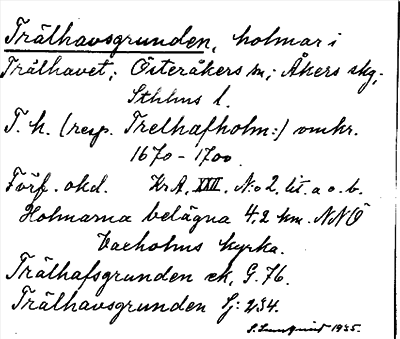 Trälhavsgrunden, holmar i
Trälhavet; Österåkers sn; Åkers skg,
Sthlms l.
T. h. (resp. Trelhafholm:) omkr.
1670-1700.
Förf. okd. Kr.A. XXII. N:o 2. lit. a o. b.
Holmarna belägna 4,2 km. NNÖ
Vaxholms kyrka.
Trälhafsgrunden ek, G. 76.
Trälhavsgrunden Sj: 234.
S. Lundquist 1935.